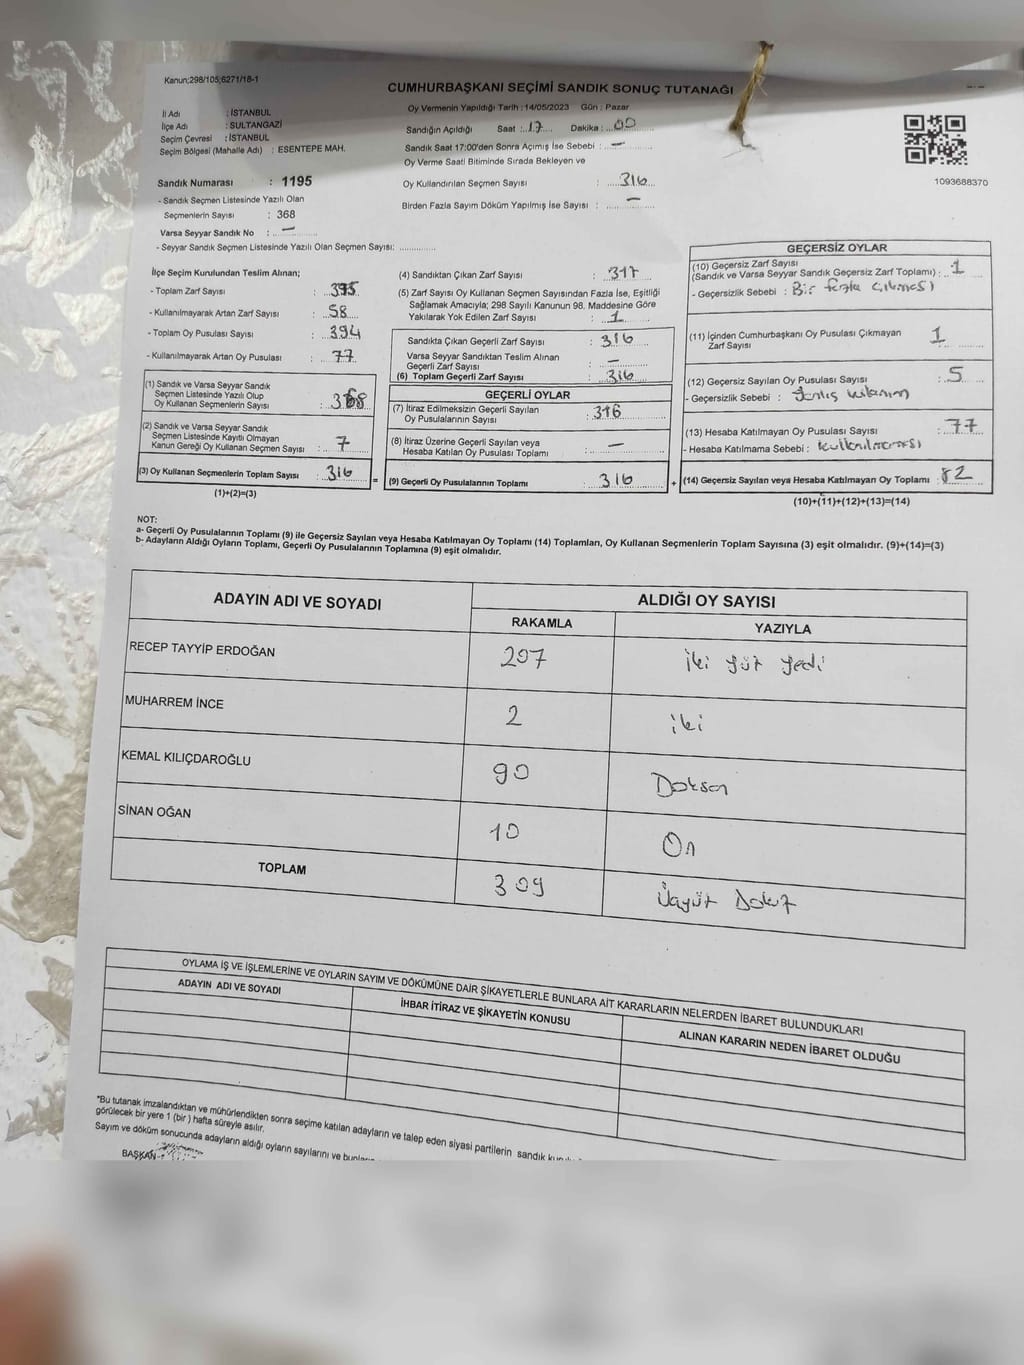 Kanun;298/105;6271/18-1
CUMHURBAŞKANI SEÇİMİ SANDIK SONUÇ TUTANAĞI
İl Adı : İSTANBUL
İlçe Adı : SULTANGAZİ
Seçim Çevresi : İSTANBUL
Seçim Bölgesi (Mahalle Adı) : ESENTEPE MAH.
Sandık Numarası : 1195
- Sandık Seçmen Listesinde Yazılı Olan
Seçmenlerin Sayısı : 368
Varsa Seyyar Sandık No : —
- Seyyar Sandık Seçmen Listesinde Yazılı Olan Seçmen Sayısı: ..............
Oy Vermenin Yapıldığı Tarih : 14/05/2023 Gün : Pazar
Sandığın Açıldığı Saat : 17 Dakika : 00
Sandık Saat 17:00'den Sonra Açmış İse Sebebi : —
Oy Verme Saati Bitiminde Sırada Bekleyen ve
Oy Kullandırılan Seçmen Sayısı : 316
Birden Fazla Sayım Döküm Yapılmış İse Sayısı : —
1093688370
İlçe Seçim Kurulundan Teslim Alınan;
- Toplam Zarf Sayısı : 375
- Kullanılmayarak Artan Zarf Sayısı : 58
- Toplam Oy Pusulası Sayısı : 394
- Kullanılmayarak Artan Oy Pusulası : 77
(1) Sandık ve Varsa Seyyar Sandık
Seçmen Listesinde Yazılı Olup
Oy Kullanan Seçmenlerin Sayısı :
(2) Sandık ve Varsa Seyyar Sandık
Seçmen Listesinde Kayıtlı Olmayan
Kanun Gereği Oy Kullanan Seçmen Sayısı : 7
(3) Oy Kullanan Seçmenlerin Toplam Sayısı : 316
(1)+(2)=(3)
(4) Sandıktan Çıkan Zarf Sayısı : 317
(5) Zarf Sayısı Oy Kullanan Seçmen Sayısından Fazla İse, Eşitliği
Sağlamak Amacıyla; 298 Sayılı Kanunun 98. Maddesine Göre
Yakılarak Yok Edilen Zarf Sayısı : 1
Sandıkta Çıkan Geçerli Zarf Sayısı : 316
Varsa Seyyar Sandıktan Teslim Alınan
Geçerli Zarf Sayısı : —
(6) Toplam Geçerli Zarf Sayısı : 316
GEÇERLİ OYLAR
(7) İtiraz Edilmeksizin Geçerli Sayılan
Oy Pusulalarının Sayısı : 316
(8) İtiraz Üzerine Geçerli Sayılan veya
Hesaba Katılan Oy Pusulası Toplamı : —
(9) Geçerli Oy Pusulalarının Toplamı : 316
GEÇERSİZ OYLAR
(10) Geçersiz Zarf Sayısı
(Sandık ve Varsa Seyyar Sandık Geçersiz Zarf Toplamı) : 1
- Geçersizlik Sebebi : Bir fazla çıkması
(11) İçinden Cumhurbaşkanı Oy Pusulası Çıkmayan
Zarf Sayısı 1
(12) Geçersiz Sayılan Oy Pusulası Sayısı : 5
- Geçersizlik Sebebi : Yanlış kullanım
(13) Hesaba Katılmayan Oy Pusulası Sayısı : 77
- Hesaba Katılmama Sebebi : kullanılmaması
(14) Geçersiz Sayılan veya Hesaba Katılmayan Oy Toplamı : 82
(10)+(11)+(12)+(13)=(14)
NOT:
a- Geçerli Oy Pusulalarının Toplamı (9) ile Geçersiz Sayılan veya Hesaba Katılmayan Oy Toplamı (14) Toplamları, Oy Kullanan Seçmenlerin Toplam Sayısına (3) eşit olmalıdır. (9)+(14)=(3)
b- Adayların Aldığı Oyların Toplamı, Geçerli Oy Pusulalarının Toplamına (9) eşit olmalıdır.
ADAYIN ADI VE SOYADI
ALDIĞI OY SAYISI
RAKAMLA YAZIYLA
RECEP TAYYİP ERDOĞAN 207 iki yüz yedi
MUHARREM İNCE 2 iki
KEMAL KILIÇDAROĞLU 90 Doksan
SİNAN OĞAN 10 On
TOPLAM 309 Üçyüz Dokuz
OYLAMA İŞ VE İŞLEMLERİNE VE OYLARIN SAYIM VE DÖKÜMÜNE DAİR ŞİKAYETLERLE BUNLARA AİT KARARLARIN NELERDEN İBARET BULUNDUKLARI
ADAYIN ADI VE SOYADI
İHBAR İTİRAZ VE ŞİKAYETİN KONUSU
ALINAN KARARIN NEDEN İBARET OLDUĞU
*Bu tutanak imzalandıktan ve mühürlendikten sonra seçime katılan adayların ve talep eden siyasi partilerin sandık
görülecek bir yere 1 (bir) hafta süreyle asılır.
Sayım ve döküm sonucunda adayların aldığı oyların sayılarını ve
BAŞKAN